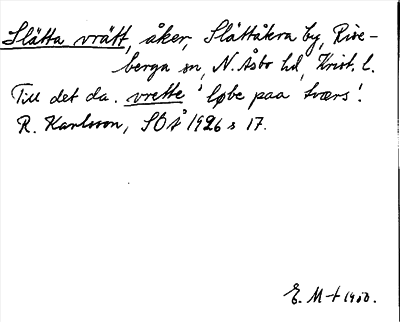 Slätta vrätt, åker, Slättåkra by, Rise-
berga sn, N. Åsbo hd, Krist. l.
Till det da. vrette 'løbe paa tværs'.
R. Karlsson, SOÅ 1926 s 17.
E. M-t 1950.